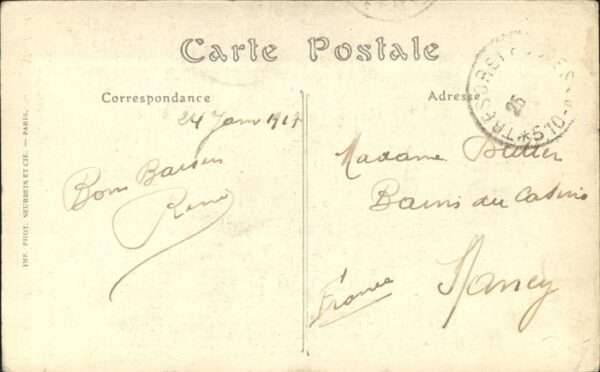 Carte Postale
Correspondance
Adresse
TRESOR ET POSTES
* 510 *
25
24 Janv 1919
Bons Baisers
René
Madame
Bains du Casino
Nancy
France
IMP. PHOT. NEURDEIN ET CIE. — PARIS.